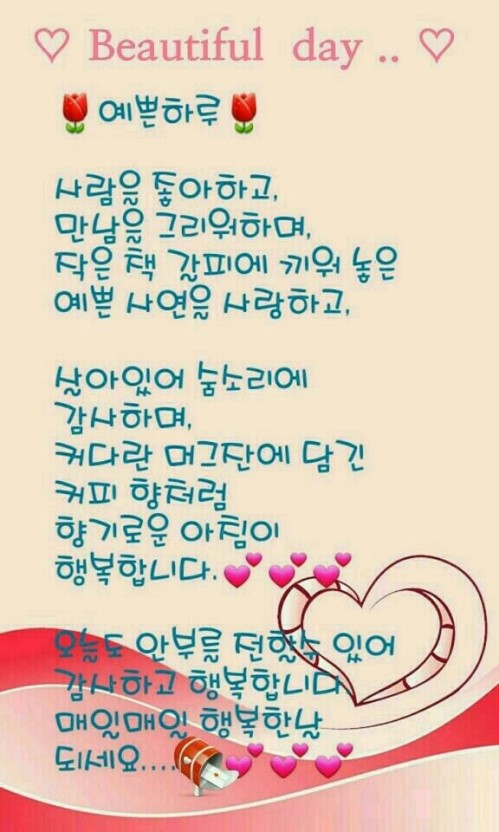 ♡ Beautiful day .. ♡
🌷예쁜하루🌷
사람을 좋아하고,
만남을 그리워하며,
작은 책 갈피에 끼워 놓은
예쁜 사연을 사랑하고,
살아있어 숨소리에
감사하며,
커다란 머그잔에 담긴
커피 향처럼
향기로운 아침이
행복합니다.💕💕💕
오늘도 안부를 전할수 있어
감사하고 행복합니다.
매일매일 행복한날
되세요....💕💕💕